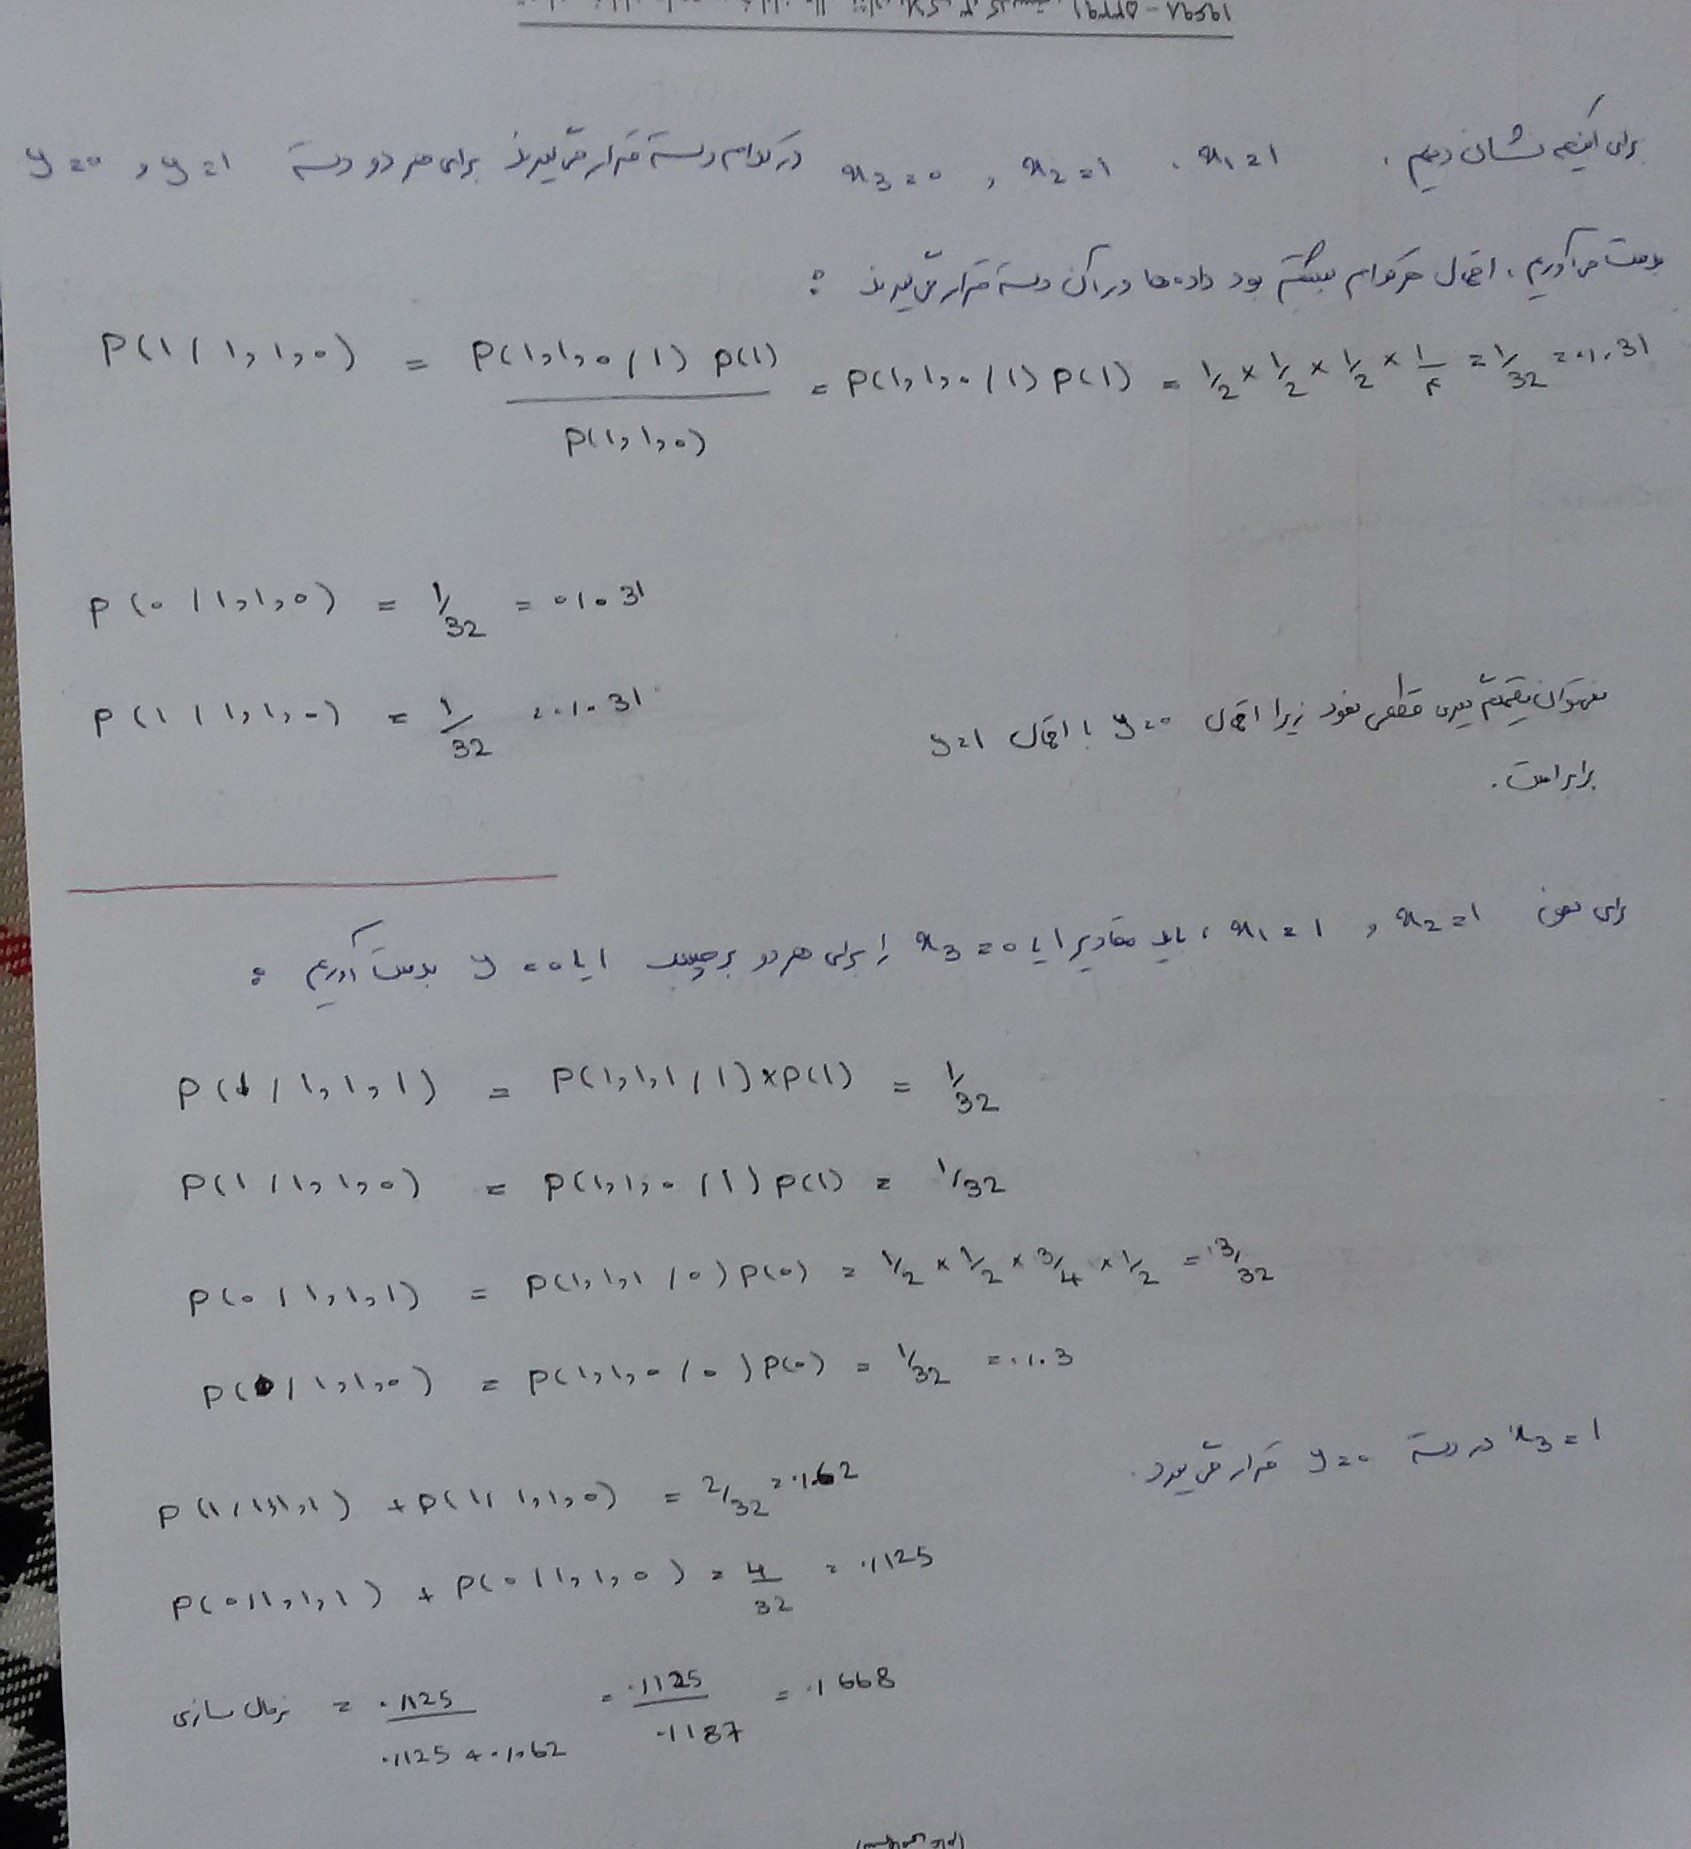 برای اینکه نشان دهیم x1=1 , x2=1 , x3=0 در کدام دسته قرار می‌گیرند برای هر دو دسته y=1 و y=0
بدست می‌آوریم، احتمال هرکدام بیشتر بود داده‌ها در آن دسته قرار می‌گیرند :
P(1/1,1,0) = P(1,1,0/1) P(1) / P(1,1,0) = P(1,1,0/1) P(1) = 1/2 × 1/2 × 1/2 × 1/۴ = 1/32 = 0/031
P(0/1,1,0) = 1/32 = 0/031
P(1/1,1,0) = 1/32 = 0/031
نمی‌توان تصمیم گیری قطعی نمود زیرا احتمال y=0 با احتمال y=1
برابر است.
برای x2=1 , x1=1 ، باید مقادیر 1 یا x3=0 را برای هر دو برچسب 1 یا y=0 بدست آوریم :
P(1/1,1,1) = P(1,1,1/1)×P(1) = 1/32
P(1/1,1,0) = P(1,1,0/1) P(1) = 1/32
P(0/1,1,1) = P(1,1,1/0) P(0) = 1/2 × 1/2 × 3/4 × 1/2 = 3/32
P(0/1,1,0) = P(1,1,0/0) P(0) = 1/32 = 0/03
x3=1 در دسته y=0 قرار می‌گیرد.
P(1/1,1,1) + P(1/1,1,0) = 2/32 = 0/062
P(0/1,1,1) + P(0/1,1,0) = 4/32 = 0/125
نرمال سازی = 0/125 / 0/125 + 0/062 = 0/125 / 0/187 = 0/668